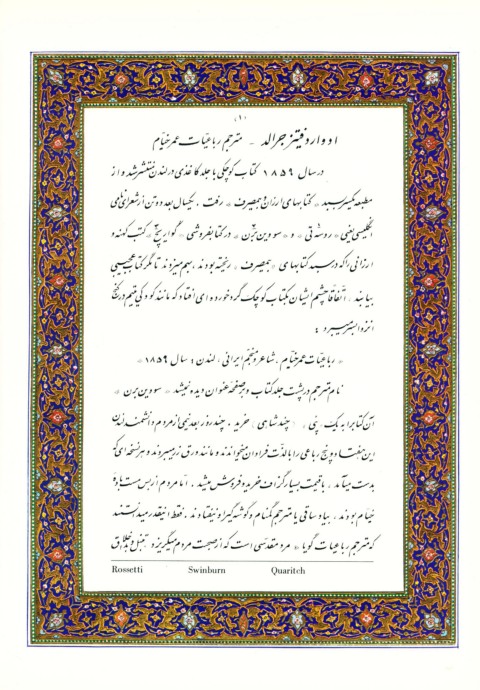 (۱)
ادوارد فیتز جرالد - مترجم رباعیّات عمر خیّام
در سال ۱۸۵۹ کتاب کوچکی با جلد کاغذی در لندن منتشر شد و از
مطبعه یکسر بسبد «کتابهای ارزان و بیمصرف» رفت. یکسال بعد دو تن از شعرای نامی
انگلیسی یعنی «روسّتی» و «سووین برن» در کتابفروشی «کواریچ» کتب کهنه و
ارزانی را که در سبد کتابهای «بیمصرف» ریخته بودند، بهم میزدند تا مگر کتاب عجیبی
بیابند. اتّفاقاً چشم ایشان بکتاب کوچک گرد خورده ای افتاد که مانند کودکی یتیم در کنج
انزوا بسر میبرد:
«رباعیّات عمر خیّام، شاعر و منجّم ایرانی، لندن: سال ۱۸۵۹»
نام مترجم در پشت جلد کتاب و بر صفحه عنوان دیده نمیشد «سووین برن»
آن کتابرا به یک پنی (چند شاهی) خرید. چند روز بعد نیمی از مردم دانشمند لندن
این هفتاد و پنج رباعی را با لذّت فراوان میخواندند و مانند ورق زر میبردند و هر نسخه ای که
بدست میآمد، با قیمت بسیار گزاف خرید و فروش میشد. امّا مردم از بس مست بادهٔ
خیّام بودند، بیاد ساقی یا مترجم گمنام و گوشه گیر او نیفتادند. فقط اینقدر میدانستند
که مترجم رباعیات گویا «مرد مقدّسی است که از صحبت مردم میگریزد و تنبل و
Rossetti Swinburn Quaritch